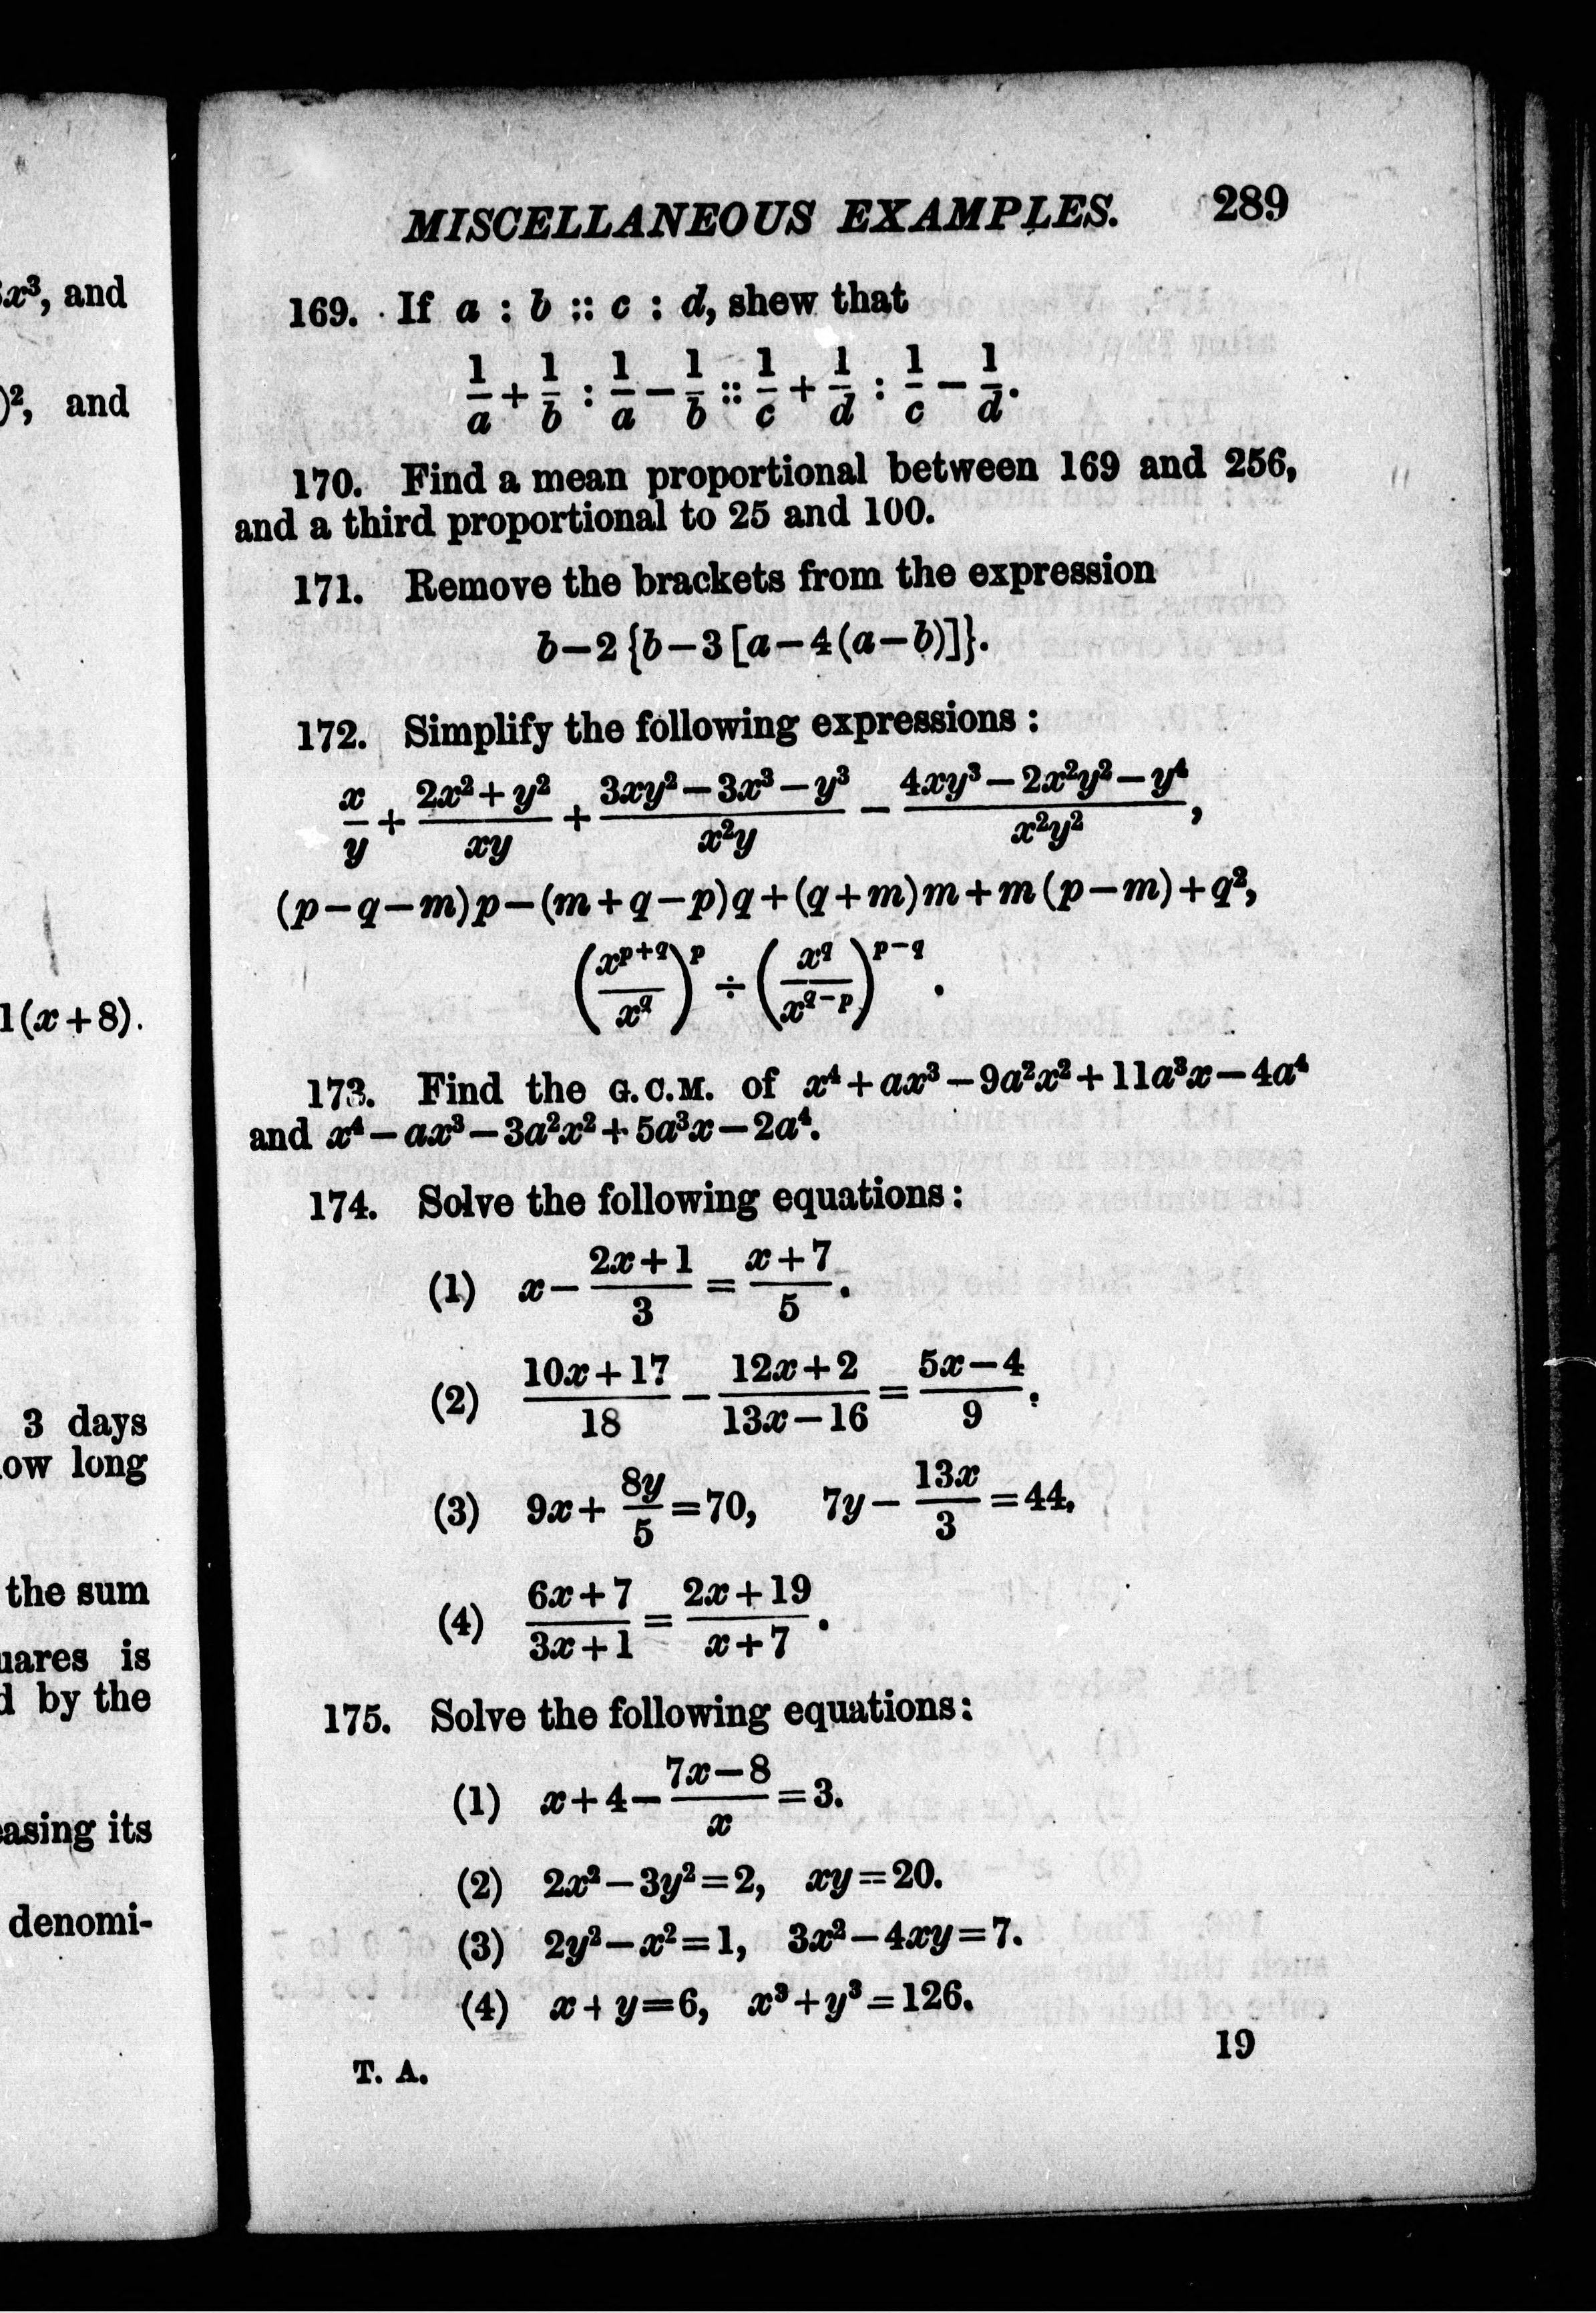 x³, and
)², and
1(x+8).
3 days
ow long
the sum
uares is
d by the
easing its
denomi-
MISCELLANEOUS EXAMPLES. 289
169. If a : b :: c : d, shew that
1/a + 1/b : 1/a − 1/b :: 1/c + 1/d : 1/c − 1/d.
170. Find a mean proportional between 169 and 256,
and a third proportional to 25 and 100.
171. Remove the brackets from the expression
b−2{b−3[a−4(a−b)]}.
172. Simplify the following expressions :
x/y + (2x²+y²)/xy + (3xy²−3x³−y³)/x²y − (4xy³−2x²y²−y⁴)/x²y²,
(p−q−m)p−(m+q−p)q+(q+m)m+m(p−m)+q²,
(x^(p+q)/x^q)^p ÷ (x^q/x^(q−p))^(p−q).
173. Find the G.C.M. of x⁴+ax³−9a²x²+11a³x−4a⁴
and x⁴−ax³−3a²x²+5a³x−2a⁴.
174. Solve the following equations:
(1) x − (2x+1)/3 = (x+7)/5.
(2) (10x+17)/18 − (12x+2)/(13x−16) = (5x−4)/9.
(3) 9x + 8y/5 = 70, 7y − 13x/3 = 44.
(4) (6x+7)/(3x+1) = (2x+19)/(x+7).
175. Solve the following equations:
(1) x+4 − (7x−8)/x = 3.
(2) 2x²−3y²=2, xy=20.
(3) 2y²−x²=1, 3x²−4xy=7.
(4) x+y=6, x³+y³=126.
T. A. 19